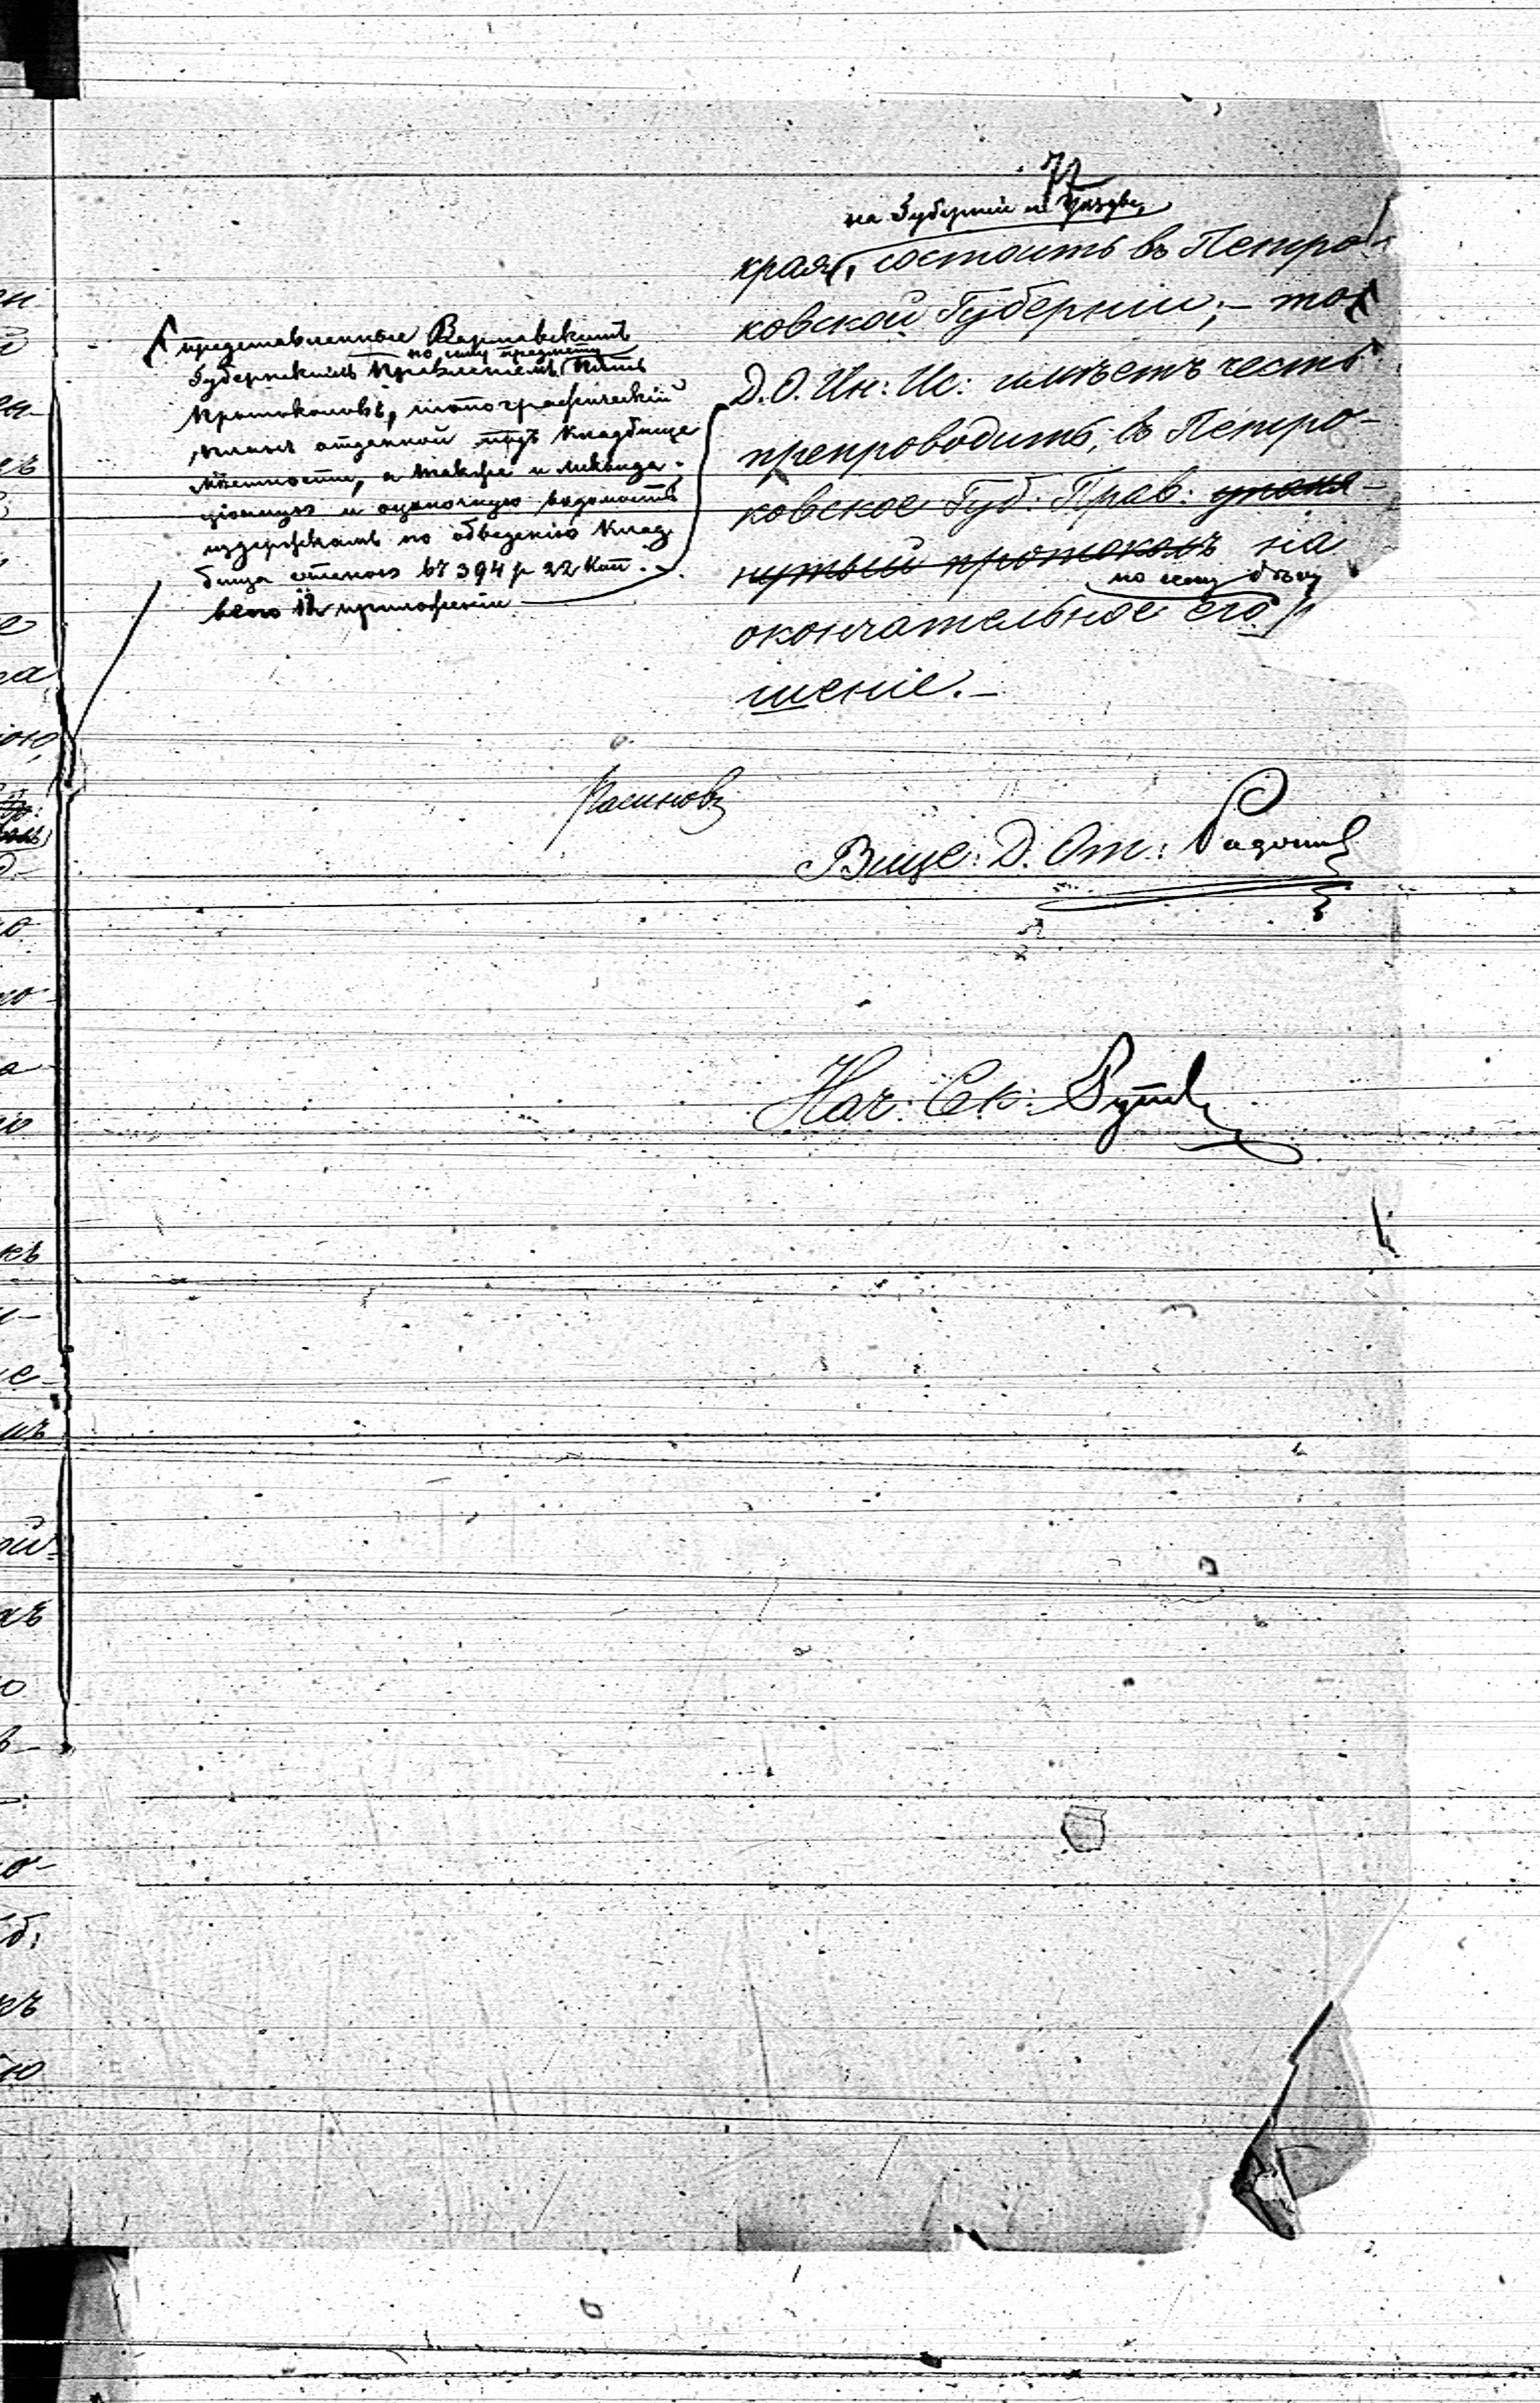 77
на Губерніи и Уѣзды,
края, состоитъ въ Петро-
ковской Губерніи; – то
Д. О. Ин: Ис: имѣетъ честь
препроводить, въ Петро-
ковское Губ: Прав: упомя-
нутый протоколъ на
по сему дѣлу
окончательное его рѣ-
шеніе. –
представленные Варшавскимъ
по сему предмету
Губернскимъ Правленіемъ пять
Протоколовъ, топографическій
планъ отданной подъ Кладбище
мѣстности, а также и ликвида-
ціонную и оцѣночную вѣдомость
издержкамъ по обведенію Клад-
бища стеною 67394 р 22 Коп.
всего приложеній
Вице: Д. От:
Нач: Сек: